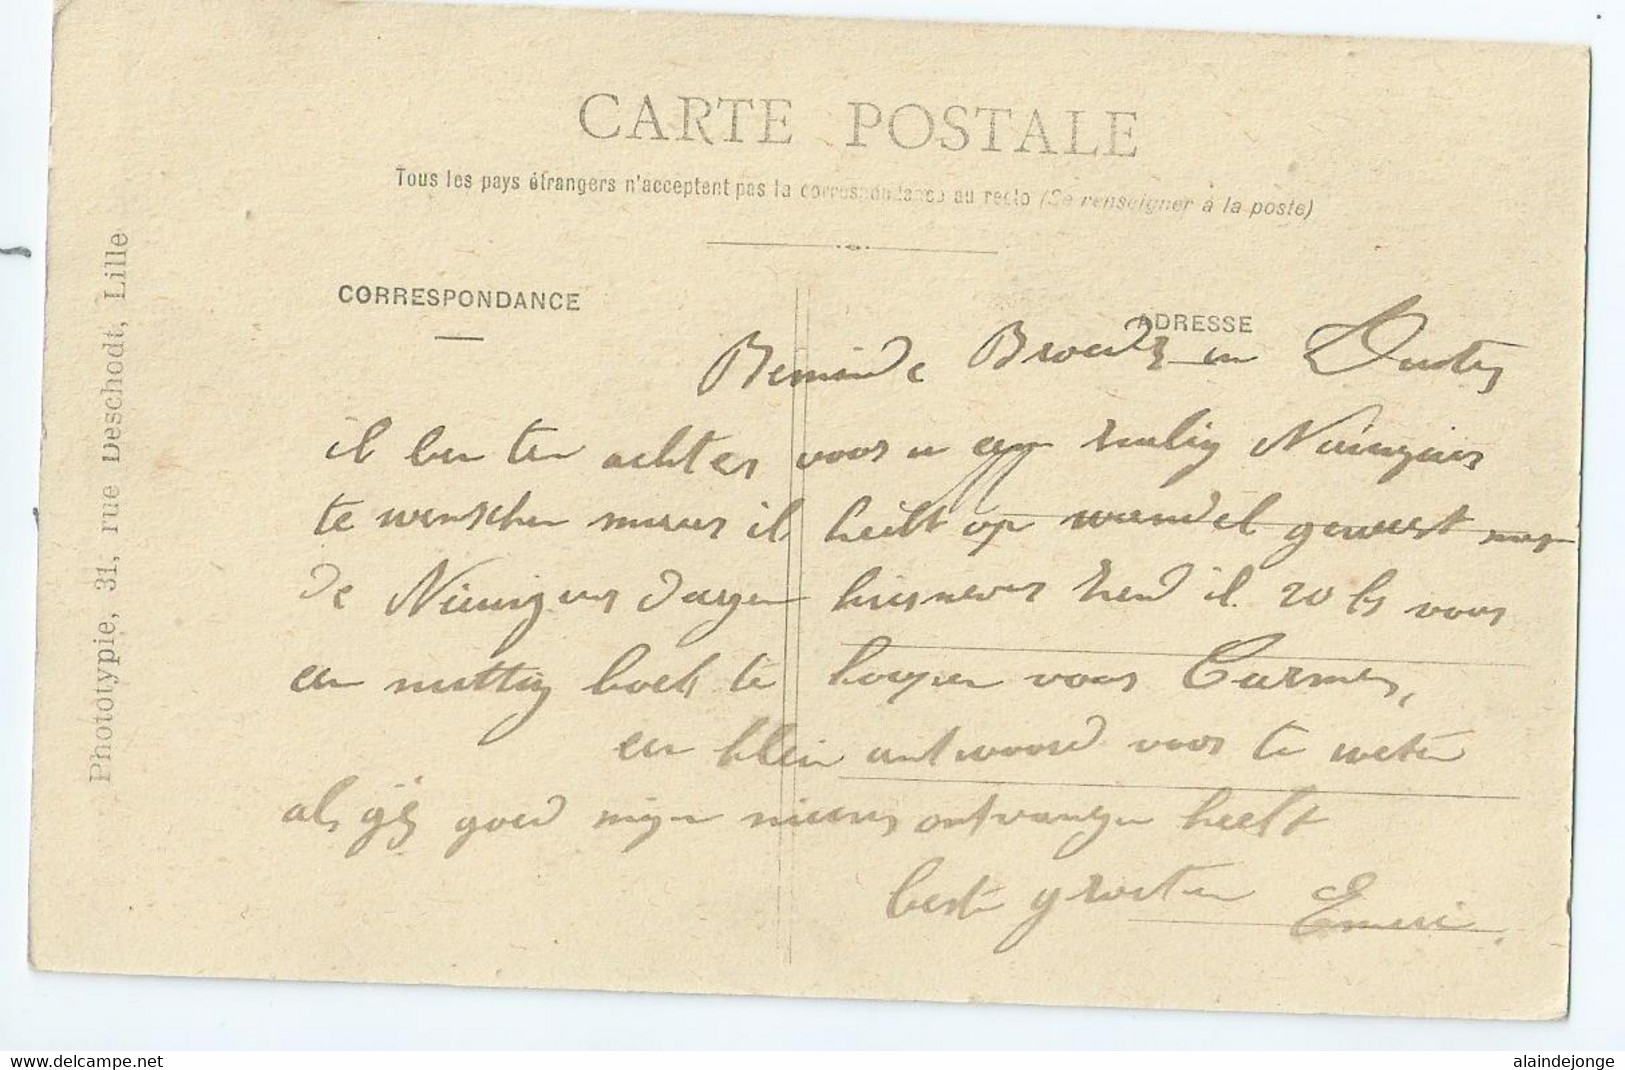 CARTE POSTALE
Tous les pays étrangers n'acceptent pas la correspondance au recto (Se renseigner à la poste)
CORRESPONDANCE
ADRESSE
Phototypie, 31, rue Deschodt, Lille
Beminde Broeder en
ik ben ten achter voor u een zalig
te wenschen maar ik hebt op wandel geweest
de dagen hiernevens zend ik 20 fr voor
een nuttig boek te koopen voor Carmen,
een klein antwoord voor te weten
als gij goed mijn nieuws ontvangen heebt
beste groeten
www.delcampe.net
alaindejonge